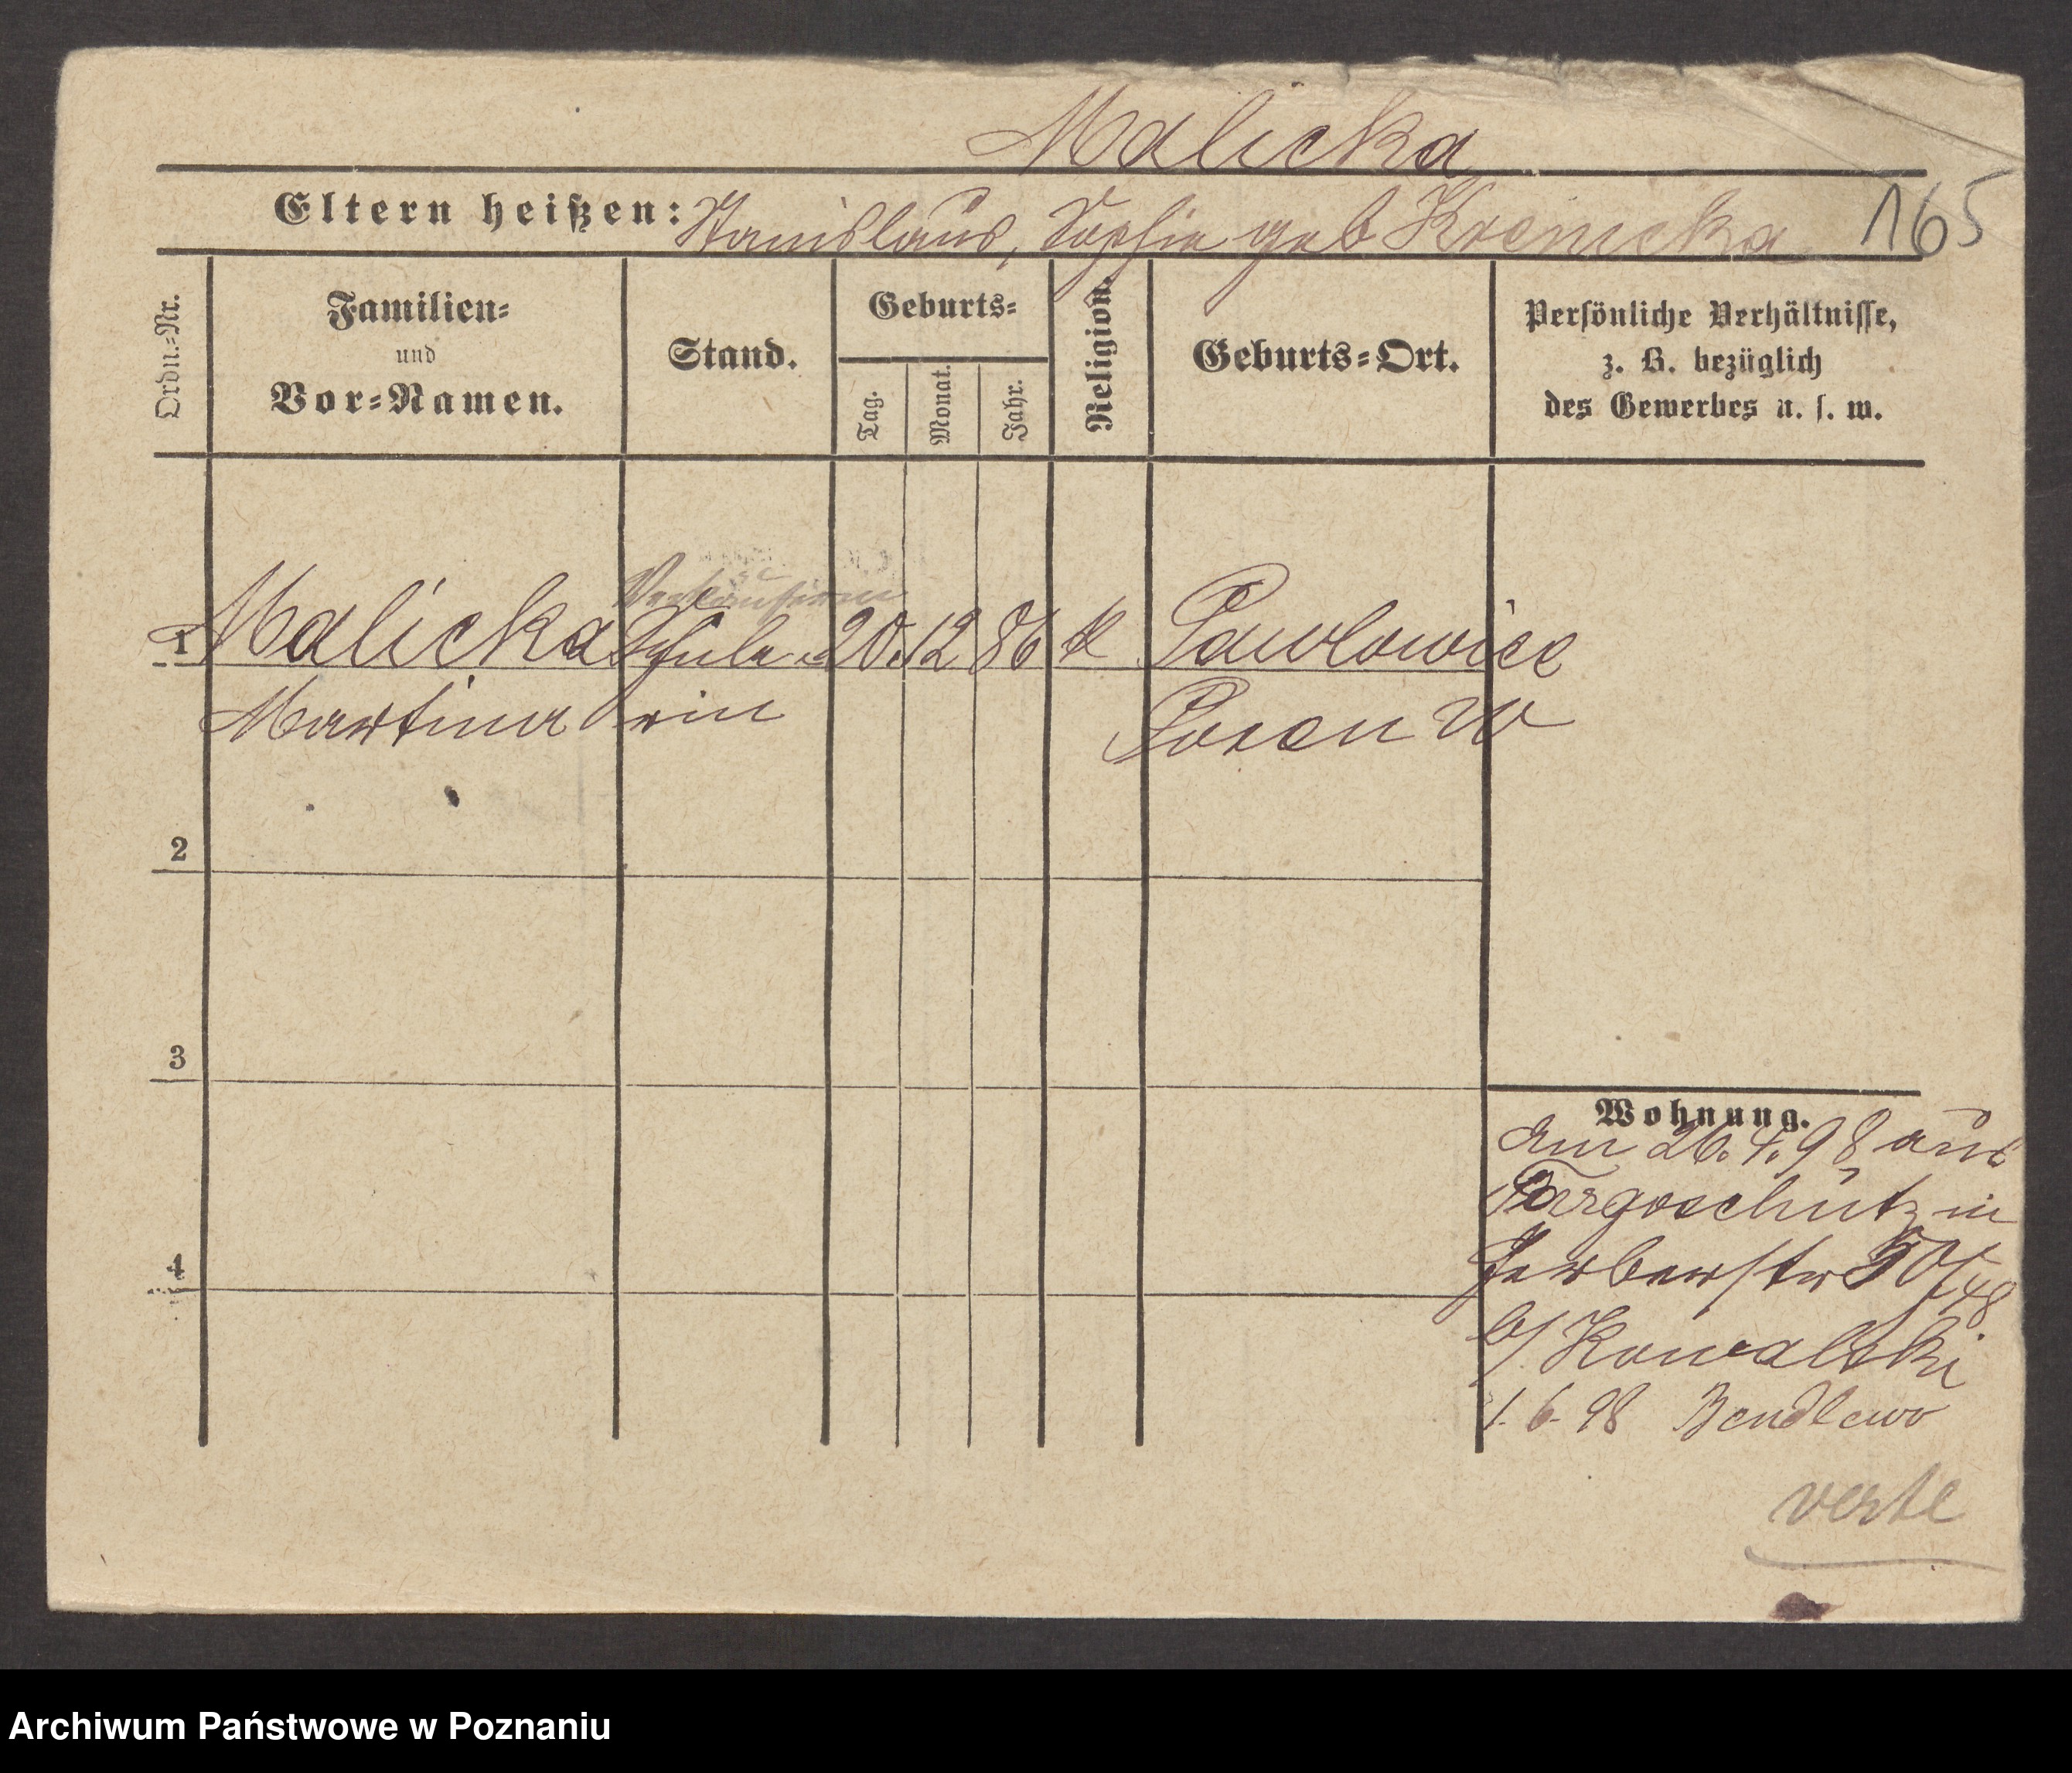 Malicka
Eltern heißen: Stanislaus, Sophie geb Krenicka 165
Ordn.-Nr.
Familien-
und
Vor-Namen.
Stand.
Geburts-
Tag.
Monat.
Jahr.
Religion.
Geburts-Ort.
Persönliche Verhältnisse,
z. B. bezüglich
des Gewerbes u. s. w.
Verkäuferin
1 Malicka Schüle 20. 12 86 k Pawlowice
Martina rin Posen W
2
3
4
Wohnung.
am 26.4.98 aus
Targoschütz in
Gerberstr 50/48
b/ Kowalski
1.6.98 Bendlewo
verte
Archiwum Państwowe w Poznaniu